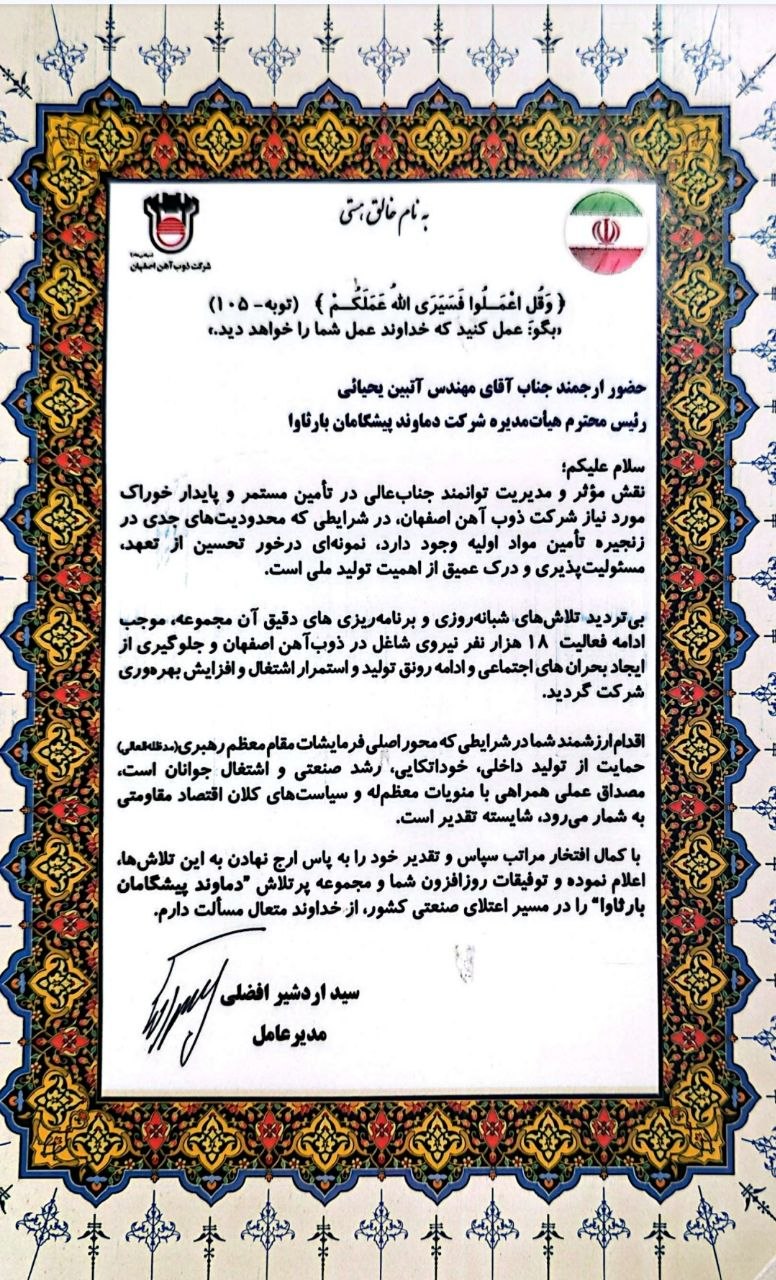 به نام خالق هستی
شرکت ذوب آهن اصفهان
﴿ وَقُل اعْمَلُوا فَسَيَرَى اللهُ عَمَلَكُمْ ﴾ (توبه- ۱۰۵)
«بگو: عمل کنید که خداوند عمل شما را خواهد دید.»
حضور ارجمند جناب آقای مهندس آتبین یحیائی
رئیس محترم هیأت‌مدیره شرکت دماوند پیشگامان بارثاوا
سلام علیکم؛
نقش مؤثر و مدیریت توانمند جناب‌عالی در تأمین مستمر و پایدار خوراک
مورد نیاز شرکت ذوب آهن اصفهان، در شرایطی که محدودیت‌های جدی در
زنجیره تأمین مواد اولیه وجود دارد، نمونه‌ای درخور تحسین از تعهد،
مسئولیت‌پذیری و درک عمیق از اهمیت تولید ملی است.
بی‌تردید تلاش‌های شبانه‌روزی و برنامه‌ریزی های دقیق آن مجموعه، موجب
ادامه فعالیت ۱۸ هزار نفر نیروی شاغل در ذوب‌آهن اصفهان و جلوگیری از
ایجاد بحران های اجتماعی و ادامه رونق تولید و استمرار اشتغال و افزایش بهره‌وری
شرکت گردید.
اقدام ارزشمند شما در شرایطی که محور اصلی فرمایشات مقام معظم رهبری(مدظله‌العالی)
حمایت از تولید داخلی، خوداتکایی، رشد صنعتی و اشتغال جوانان است،
مصداق عملی همراهی با منویات معظم‌له و سیاست‌های کلان اقتصاد مقاومتی
به شمار می‌رود، شایسته تقدیر است.
با کمال افتخار مراتب سپاس و تقدیر خود را به پاس ارج نهادن به این تلاش‌ها،
اعلام نموده و توفیقات روزافزون شما و مجموعه پرتلاش "دماوند پیشگامان
بارثاوا" را در مسیر اعتلای صنعتی کشور، از خداوند متعال مسألت دارم.
سید اردشیر افضلی
مدیرعامل